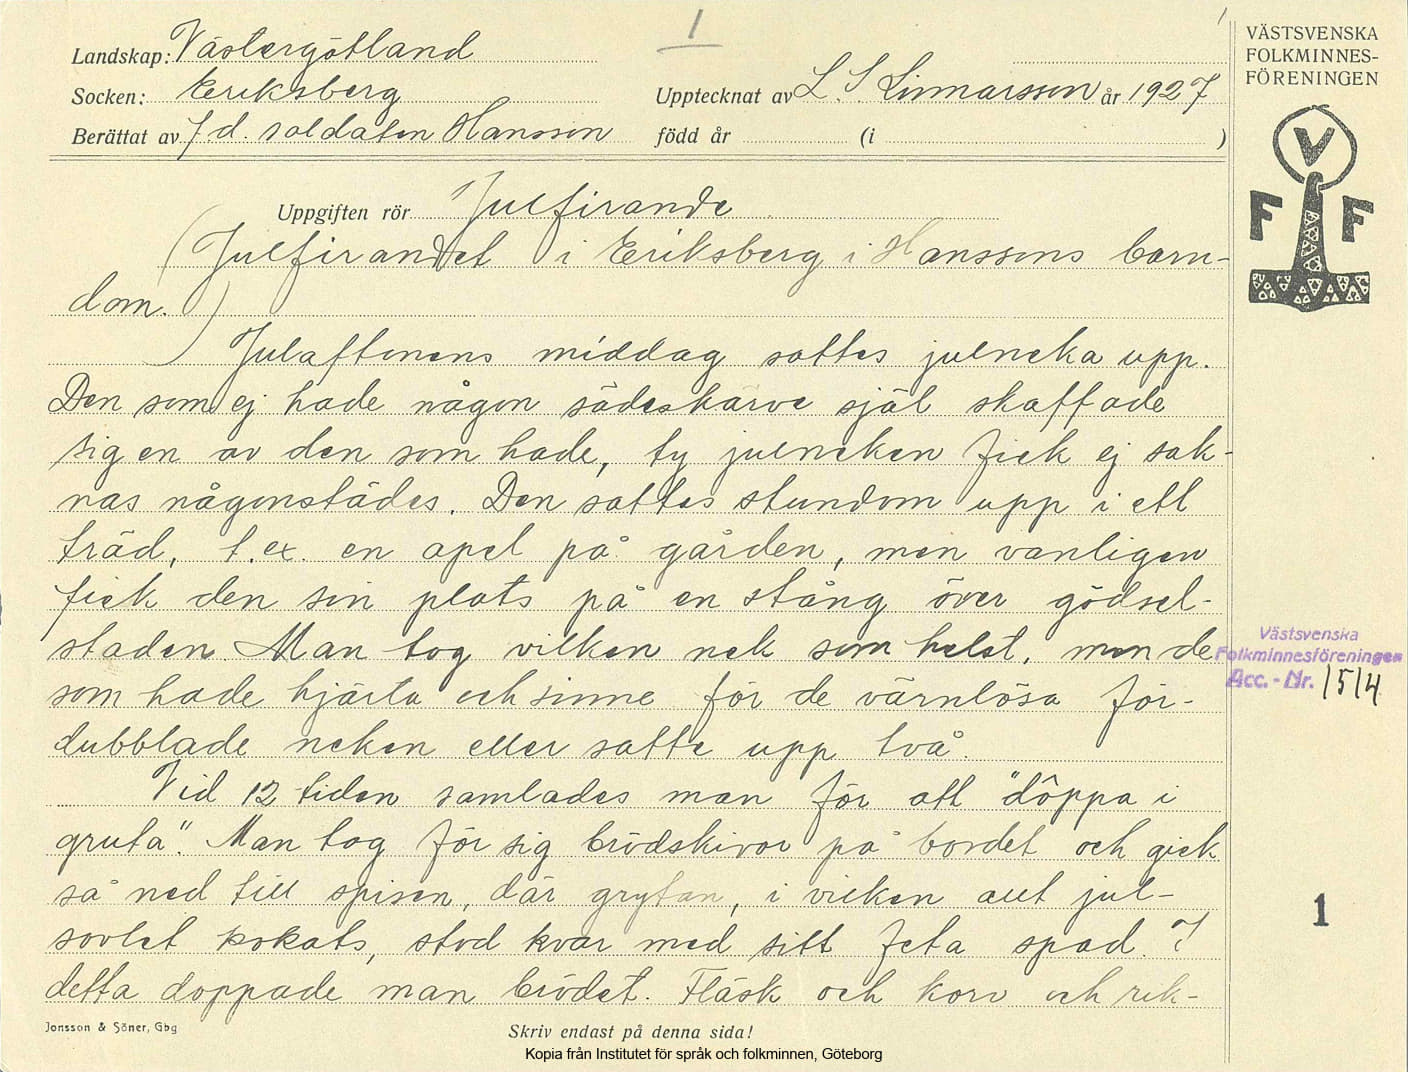 1
Landskap: Västergötland
Socken: Eriksberg
Upptecknat av L. S. Linnarsson år 1927
Berättat av f.d. soldaten Hansson född år (i )
VÄSTSVENSKA
FOLKMINNES-
FÖRENINGEN
V
F F
Uppgiften rör Julfirande
(Julfirandet i Eriksberg i Hanssons barn-
dom.)
Julaftonens middag sattes julneka upp.
Den som ej hade någon sädeskärve själ skaffade
sig en av den som hade, ty julneken fick ej sak-
nas någonstädes. Den sattes stundom upp i ett
träd, t.ex. en apel på gården, men vanligen
fick den sin plats på en stång över gödsel-
staden. Man tog vilken nek som helst, men de
som hade hjärta och sinne för de värnlösa för-
dubblade neken eller satte upp två.
Vid 12 tiden samlades man för att "döppa i
gruta". Man tog för sig brödskivor på bordet och gick
så ned till spisen, där grytan, i vilken allt jul-
sovlet kokats, stod kvar med sitt feta spad. I
detta doppade man brödet. Fläsk och korv och rik-
Västsvenska
Folkminnesföreningen
Acc.-Nr. 1514
1
Jonsson & Söner, Gbg
Skriv endast på denna sida!
Kopia från Institutet för språk och folkminnen, Göteborg